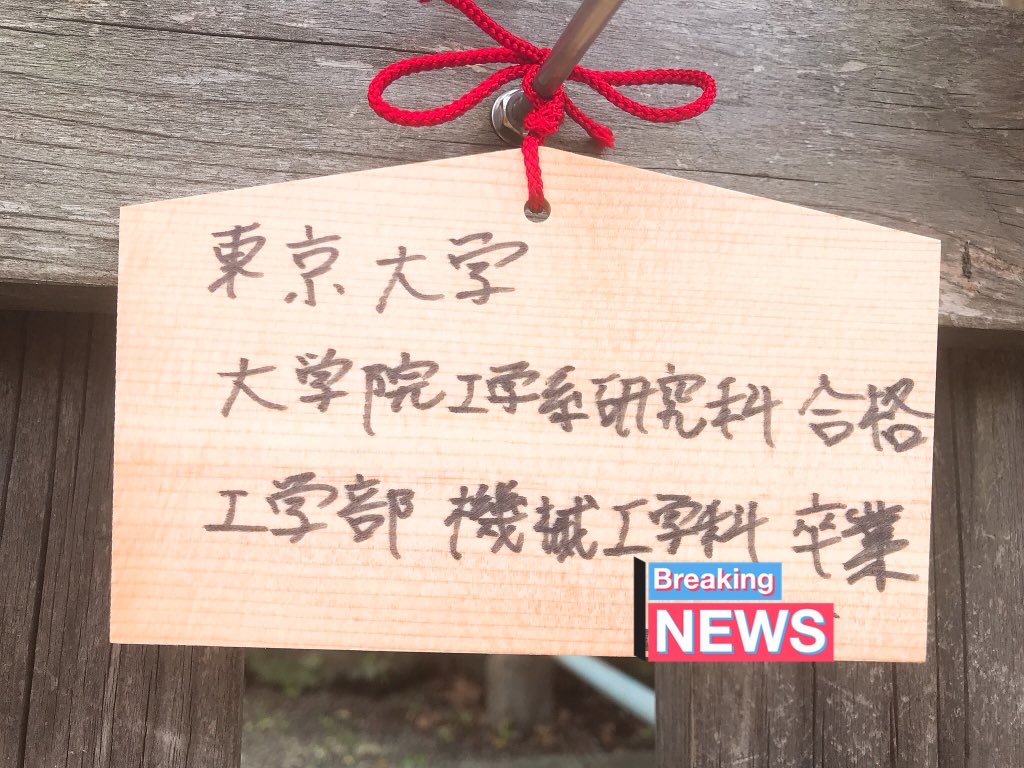 東京大学
大学院工学系研究科 合格
工学部 機械工学科 卒業
Breaking
NEWS